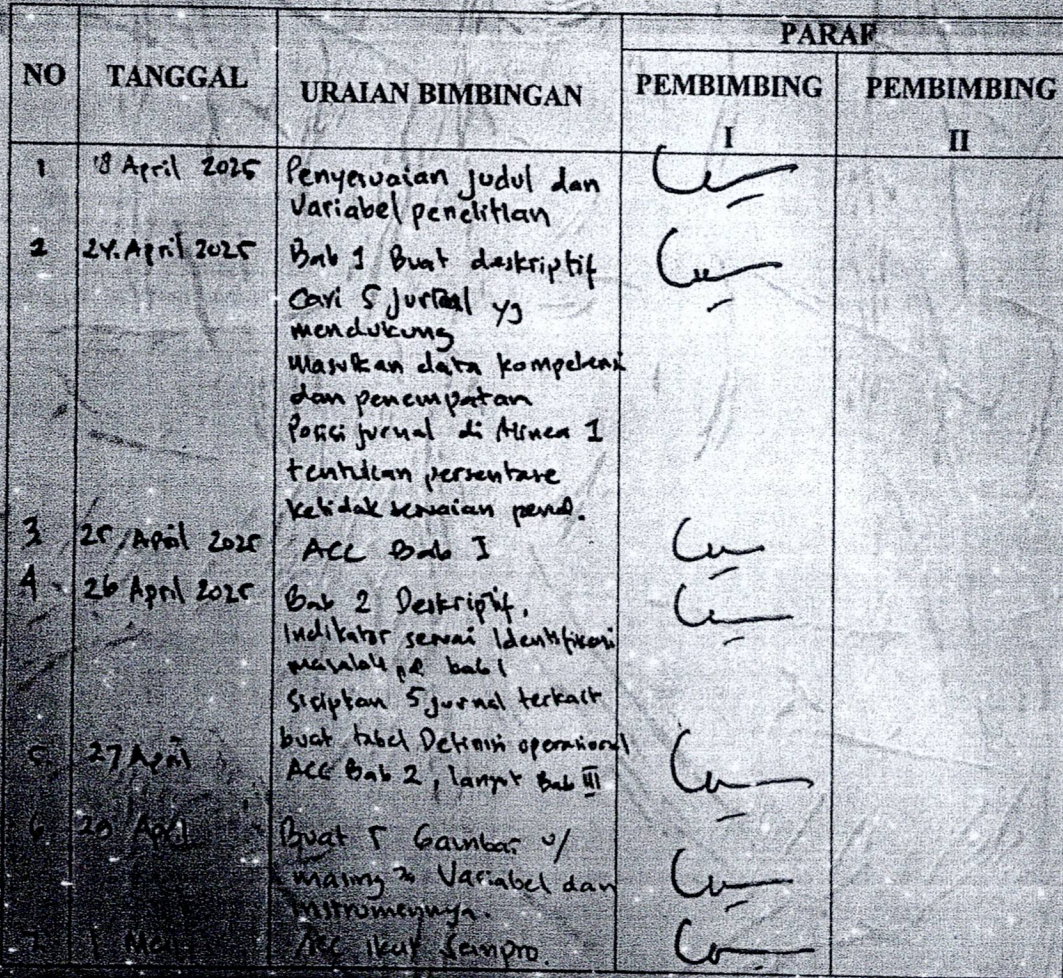 PARAF
NO TANGGAL URAIAN BIMBINGAN PEMBIMBING I PEMBIMBING II
1 18 April 2025 Penyesuaian judul dan
Variabel penelitian
2 24 April 2025 Bab 1 Buat deskriptif
Cari 5 jurnal yg
mendukung
Masukan data kompetensi
dan penempatan
Posisi jurnal di Alinea 1
tentukan persentase
ketidak sesuaian pend.
3 25 April 2025 ACC Bab I
4 26 April 2025 Bab 2 Deskriptif,
Indikator sesuai Identifikasi
masalah pd bab 1
Sisipkan 5 jurnal terkait
buat tabel Definisi operasional
5. 27 April ACC Bab 2, lanjut Bab III
6. April Buat 5 Gambar u/
masing 2 Variabel dan
Instrumennya.
7. 1 Mei ACC ikut Sempro.